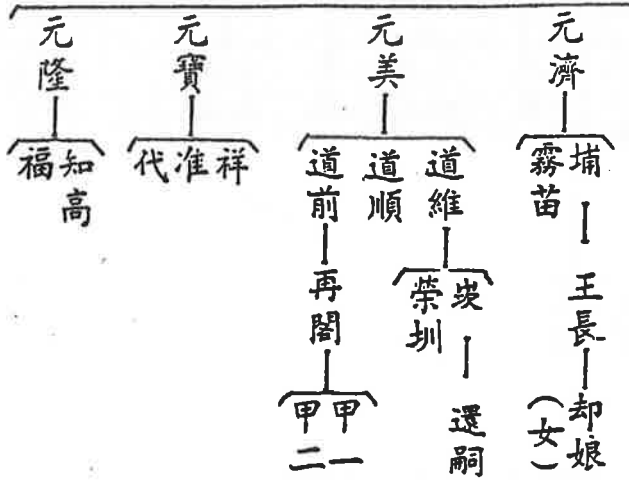 元濟
埔
霧苗
王長
却娘
（女）
元美
道維
道順
道前
崁
榮圳
還嗣
再閣
甲一
甲二
元寶
祥
准
代
元隆
知高
福